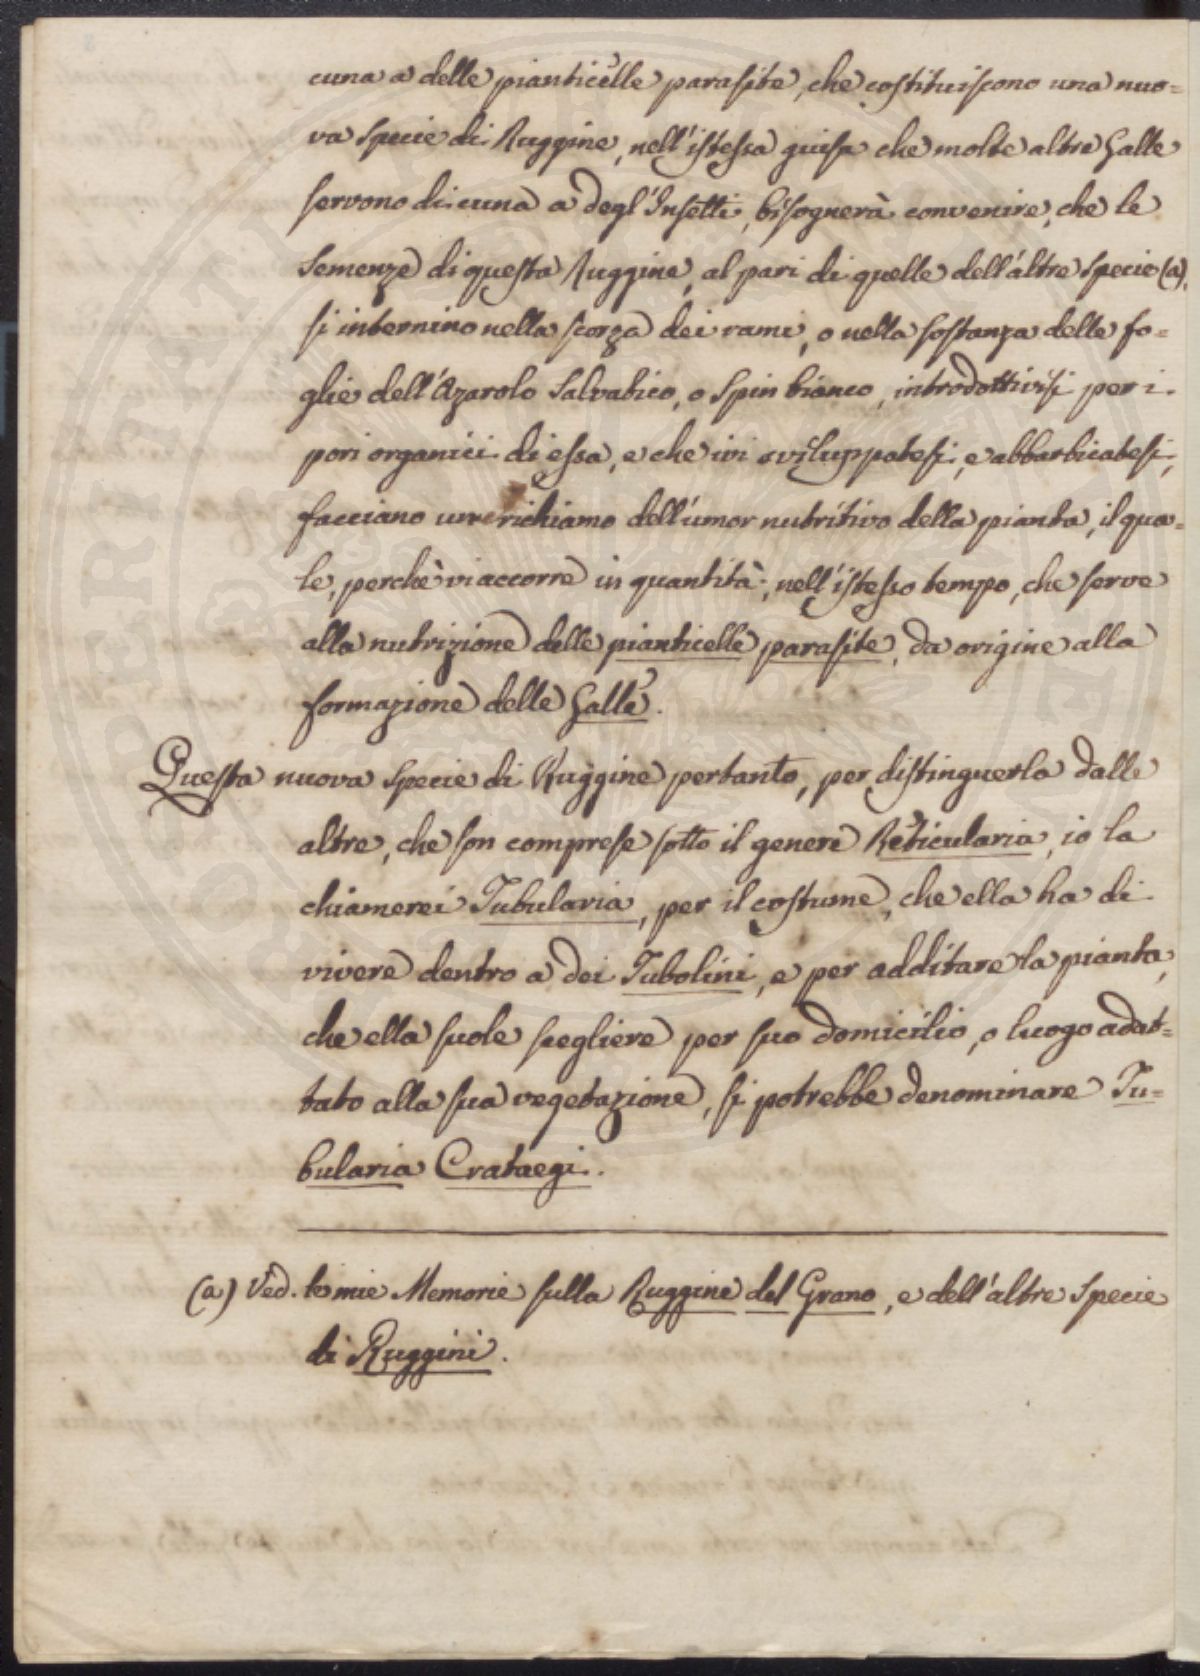 cuna a delle pianticelle parasite, che costituiscono una nuo=
va specie di Ruggine, nell'istessa guisa che molte altre Galle
servono di cuna a degl'Insetti, bisognerà convenire, che le
semenze di questa Ruggine, al pari di quelle dell'altre specie (a),
si internino nella scorza dei rami, o nella sostanza delle fo=
glie dell'Azarolo Salvatico, o Spin bianco, introdottivisi per i
pori organici di essa, e che ivi sviluppatesi, e abbarbicatesi,
facciano un richiamo dell'umor nutritivo della pianta, il qua=
le, perchè vi accorre in quantità, nell'istesso tempo, che serve
alla nutrizione delle pianticelle parasite, da origine alla
formazione delle Galle.
Questa nuova specie di Ruggine pertanto, per distinguerla dalle
altre, che son comprese sotto il genere Reticularia, io la
chiamerei Tubularia, per il costume, che ella ha di
vivere dentro a dei Tubolini, e per additare la pianta,
che ella suole scegliere per suo domicilio, o luogo adat=
tato alla sua vegetazione, si potrebbe denominare Tu=
bularia Crataegi.
(a) Ved. le mie Memorie sulla Ruggine del Grano, e dell'altre specie
di Ruggini.